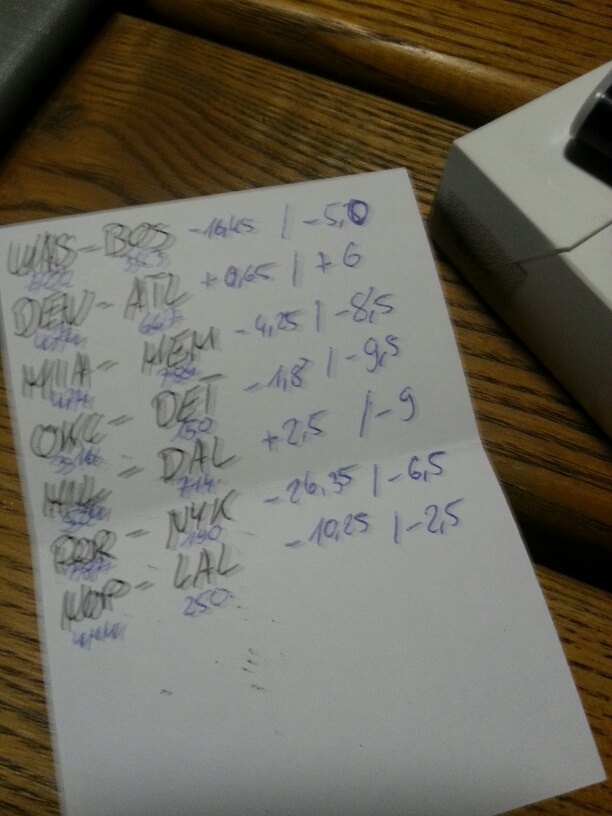 WAS - BOS -16,45 | -5,0
DEN - ATL +0,65 | +6
667
MIA - MEM -4,25 | -8,5
OKC - DET -1,8 | -9,5
150
MIL - DAL +2,5 | -9
714
POR - NYK -26,35 | -6,5
190
NOP - LAL -10,25 | -2,5
250